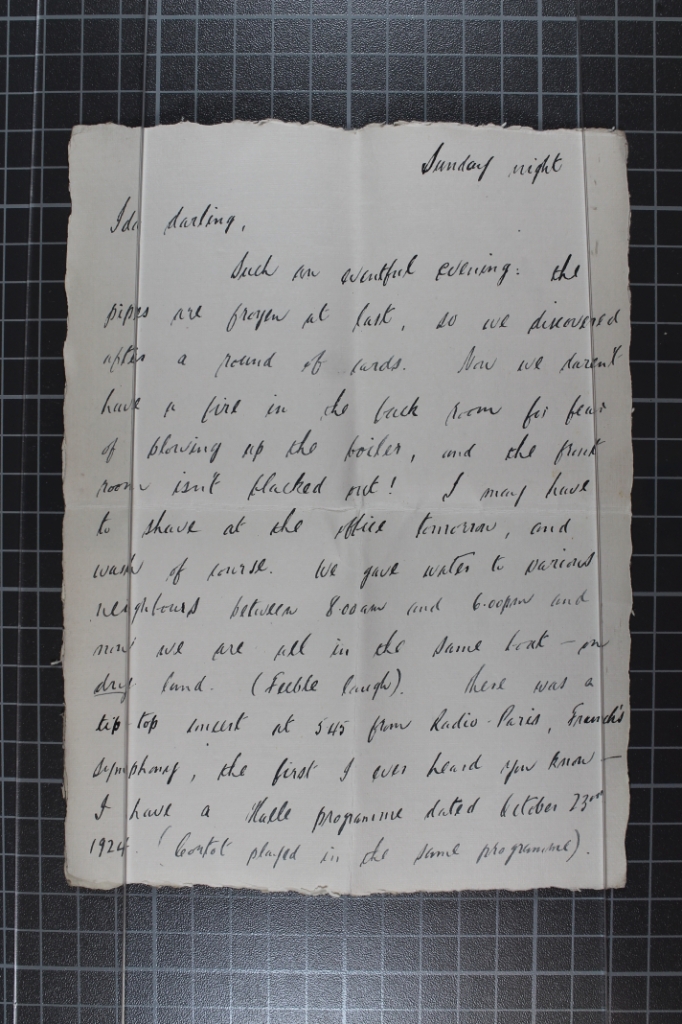 Sunday night
Ida darling,
Such an eventful evening: the
pipes are frozen at last, so we discovered
after a round of cards. Now we daren't
have a fire in the back room for fear
of blowing up the boiler, and the front
room isn't blacked out! I may have
to shave at the office tomorrow, and
wash of course. We gave water to various
neighbours between 8.00am and 6.00pm and
now we are all in the same boat — on
dry land. (Feeble laugh). There was a
tip-top concert at 5.45 from Radio-Paris, Franck's
symphony, the first I ever heard you know —
I have a Halle programme dated October 23rd
1924. (Cortot played in the same programme).